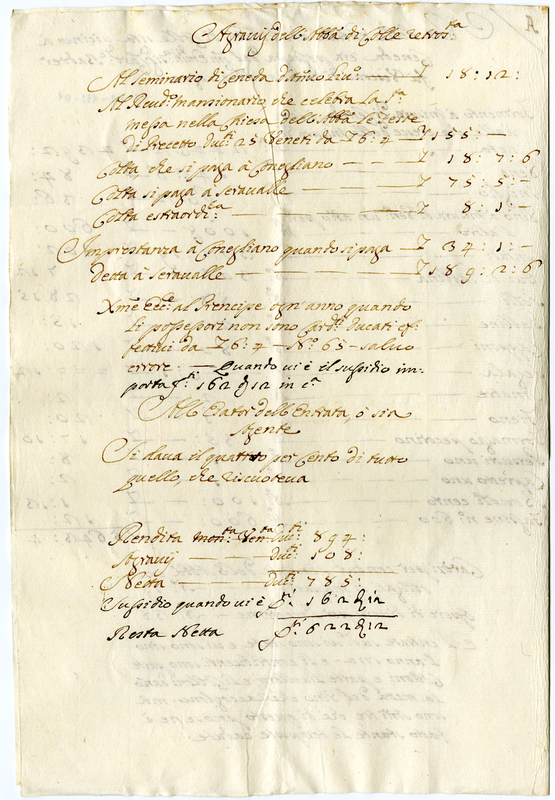 Aggravij dell Abbã di Colle
Al seminario di Ceneda d'annuo Liv.º — L 18: 12:
Al Rev.dº mansionario, che celebra La S.ta
messa nella chiesa dell Abbã se deve
di Precetto Duc.ti 25 Veneti da L 6:4 — L 155: —
Colta che si paga à Conegliano — — L 18: 7: 6
Colta si paga à Seravalle — L 75: 5: —
Colta estraordi.ria — L 8: 1: —
Imprestanza à Conegliano quando si paga — L 34: 1: —
detta à Seravalle — L 189: 2: 6
Xme Ecc.e al Principe ogn'anno quando
Li possessori non sono Card.li Ducati ef-
fettivi da L 6:4 — Nº 65 — salvo
errore — Quando vi è il sussidio im-
porta 162 12 in c.a
All Dator dell Entrata, ò sia
Agente
Si dava il quatro per Cento di tutto
quello, che riscuoteva
Rendita mon.ta Ven.ta Duc.ti 894:
Agravij — Duc.ti 108:
Resta — Duc.ti 785:
Sussidio quando vi è 162 12
Resta Netta 622 12
A